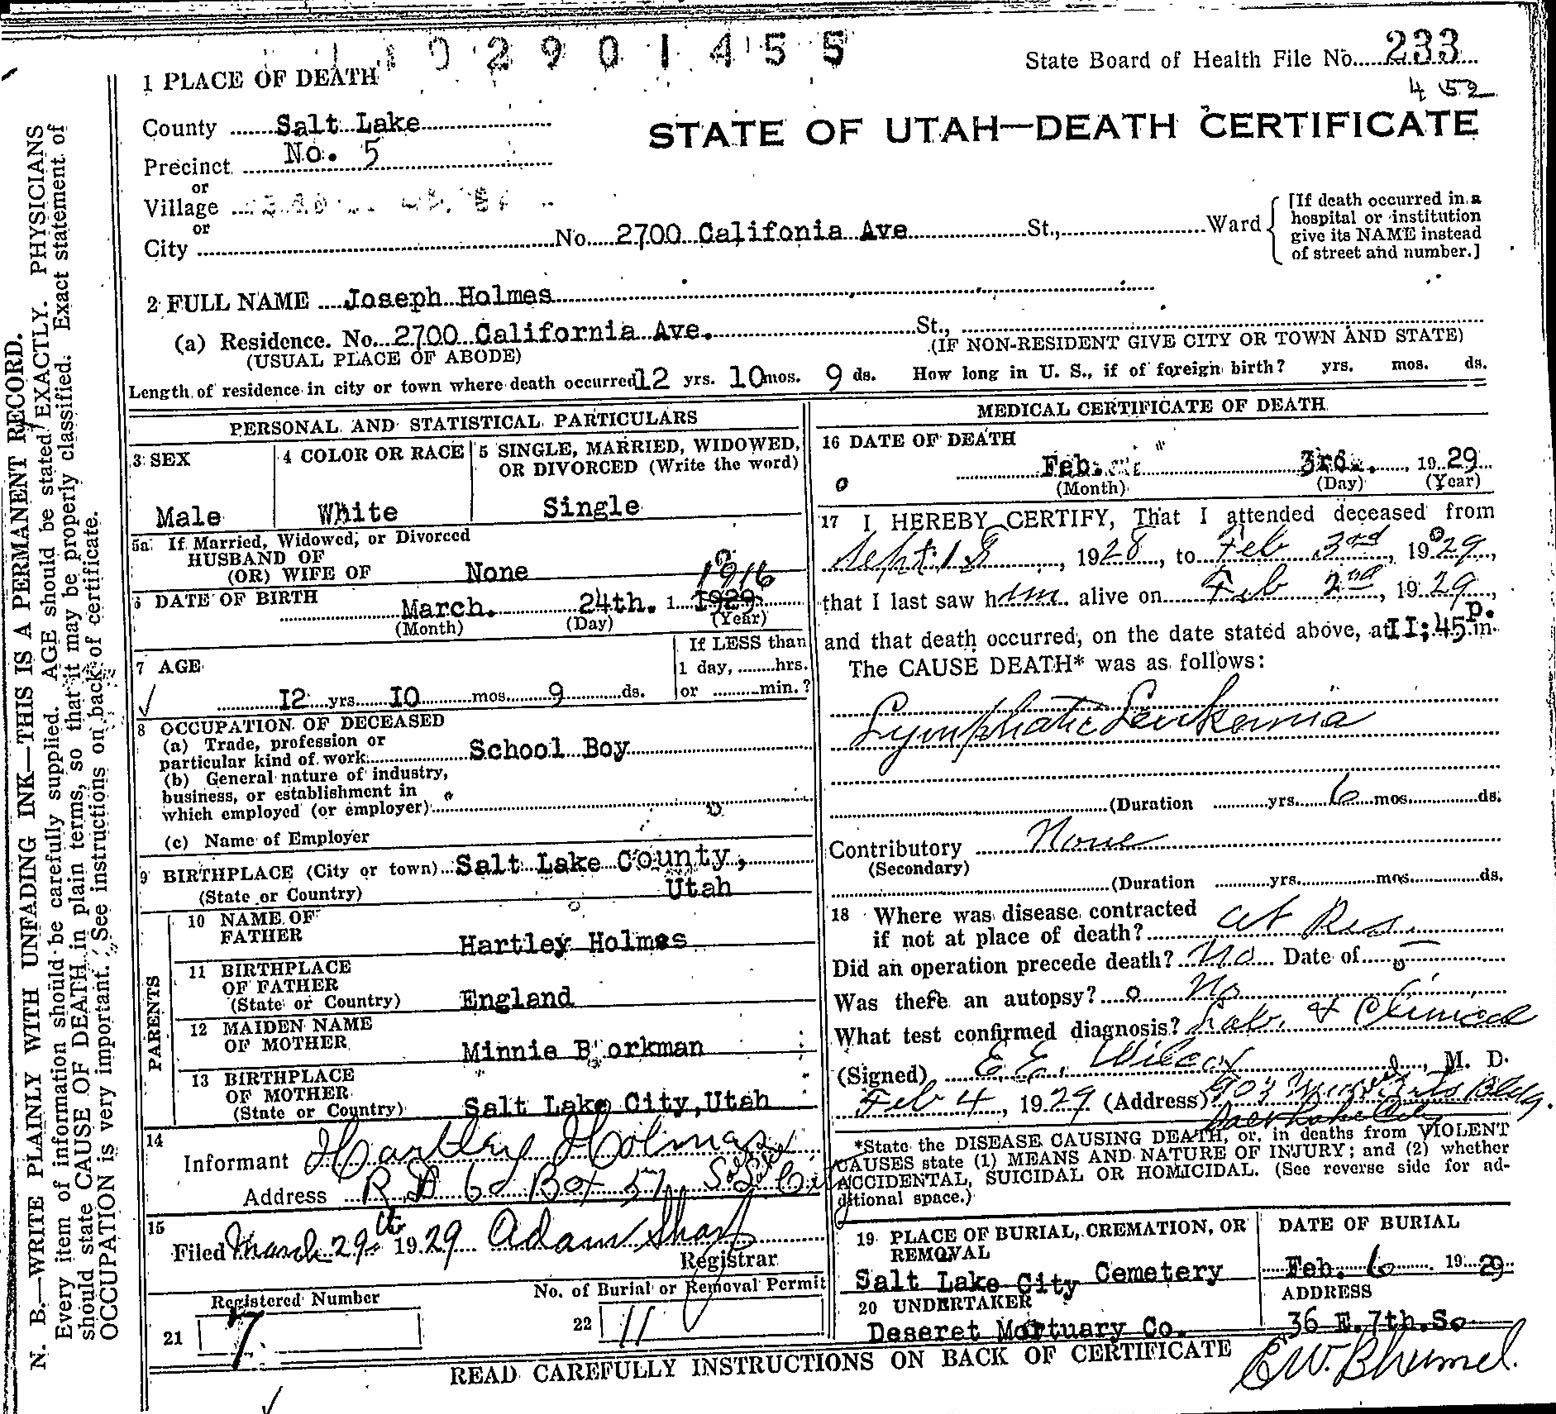 1 9 2 9 0 1 4 5 5
State Board of Health File No. 233
452
1 PLACE OF DEATH
STATE OF UTAH—DEATH CERTIFICATE
County Salt Lake
Precinct No. 5
or
Village
or
City No. 2700 Califonia Ave St., Ward
[If death occurred in a
hospital or institution
give its NAME instead
of street and number.]
2 FULL NAME Joseph Holmes
(a) Residence. No. 2700 California Ave. St.,
(USUAL PLACE OF ABODE) (IF NON-RESIDENT GIVE CITY OR TOWN AND STATE)
Length of residence in city or town where death occurred 12 yrs. 10 mos. 9 ds. How long in U. S., if of foreign birth? yrs. mos. ds.
PERSONAL AND STATISTICAL PARTICULARS
3 SEX
Male
4 COLOR OR RACE
White
5 SINGLE, MARRIED, WIDOWED,
OR DIVORCED (Write the word)
Single
5a If Married, Widowed, or Divorced
HUSBAND OF
(OR) WIFE OF None
1916
6 DATE OF BIRTH March. 24th. 1 1929
(Month) (Day) (Year)
7 AGE
12 yrs. 10 mos. 9 ds.
If LESS than
1 day, hrs.
or min.?
8 OCCUPATION OF DECEASED
(a) Trade, profession or
particular kind of work School Boy
(b) General nature of industry,
business, or establishment in
which employed (or employer)
(c) Name of Employer
9 BIRTHPLACE (City or town) Salt Lake County,
(State or Country) Utah
PARENTS
10 NAME OF
FATHER Hartley Holmes
11 BIRTHPLACE
OF FATHER
(State or Country) England
12 MAIDEN NAME
OF MOTHER Minnie Bjorkman
13 BIRTHPLACE
OF MOTHER
(State or Country) Salt Lake City, Utah
14
Informant Hartley Holmes
Address R D 6 Box 57 S. L. City
15
Filed March 29th 1929 Adam Sharp
Registrar
Registered Number
21 7
No. of Burial or Removal Permit
22 11
MEDICAL CERTIFICATE OF DEATH
16 DATE OF DEATH
Feb. 3rd. 19 29
(Month) (Day) (Year)
17 I HEREBY CERTIFY, That I attended deceased from
Sept. 18, 1928, to Feb 3rd, 1929,
that I last saw him alive on Feb 2nd, 1929,
and that death occurred, on the date stated above, at II;45 p. m.
The CAUSE DEATH* was as follows:
Lymphatic Leukemia
(Duration yrs. 6 mos. ds.
Contributory None
(Secondary)
(Duration yrs. mos. ds.
18 Where was disease contracted
if not at place of death? at Res.
Did an operation precede death? No Date of —
Was there an autopsy? No
What test confirmed diagnosis? Lab. & Clinical
(Signed) E. E. Wilcox, M. D.
Feb 4, 1929 (Address) Bldg.
Salt Lake City
*State the DISEASE CAUSING DEATH, or, in deaths from VIOLENT
CAUSES state (1) MEANS AND NATURE OF INJURY; and (2) whether
ACCIDENTAL, SUICIDAL OR HOMICIDAL. (See reverse side for ad-
ditional space.)
19 PLACE OF BURIAL, CREMATION, OR
REMOVAL
Salt Lake City Cemetery
DATE OF BURIAL
Feb. 6 19 29
20 UNDERTAKER
Deseret Mortuary Co.
ADDRESS
36 E. 7th. So
READ CAREFULLY INSTRUCTIONS ON BACK OF CERTIFICATE
N. B.—WRITE PLAINLY WITH UNFADING INK—THIS IS A PERMANENT RECORD.
Every item of information should be carefully supplied. AGE should be stated EXACTLY. PHYSICIANS
should state CAUSE OF DEATH in plain terms, so that it may be properly classified. Exact statement of
OCCUPATION is very important. See instructions on back of certificate.